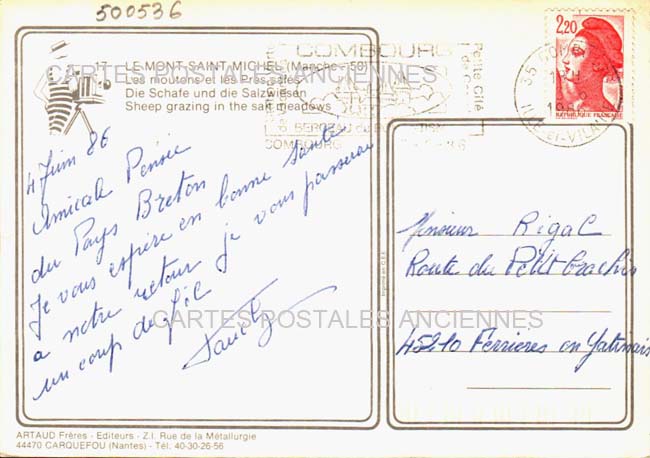 500536
17 LE MONT SAINT MICHEL (Manche - 50)
Les moutons et les Prés salés
Die Schafe und die Salzwiesen
Sheep grazing in the salt meadows
CARTES POSTALES ANCIENNES
COMBOURG
Petite Cité
BERCEAU du
COMBOURG
35 COMBOURG
ILLE-et-VILAINE
2,20
REPUBLIQUE FRANÇAISE
4 Juin 86
Amicale Pensée
du Pays Breton
Je vous espère en bonne santé
a notre retour je vous passerai
un coup de fil
Monsieur Rigal
Route du Petit
45210 Ferrieres en Gatinais
CARTES POSTALES ANCIENNES
ARTAUD Frères - Editeurs - Z.I. Rue de la Métallurgie
44470 CARQUEFOU (Nantes) - Tél. 40-30-26-56